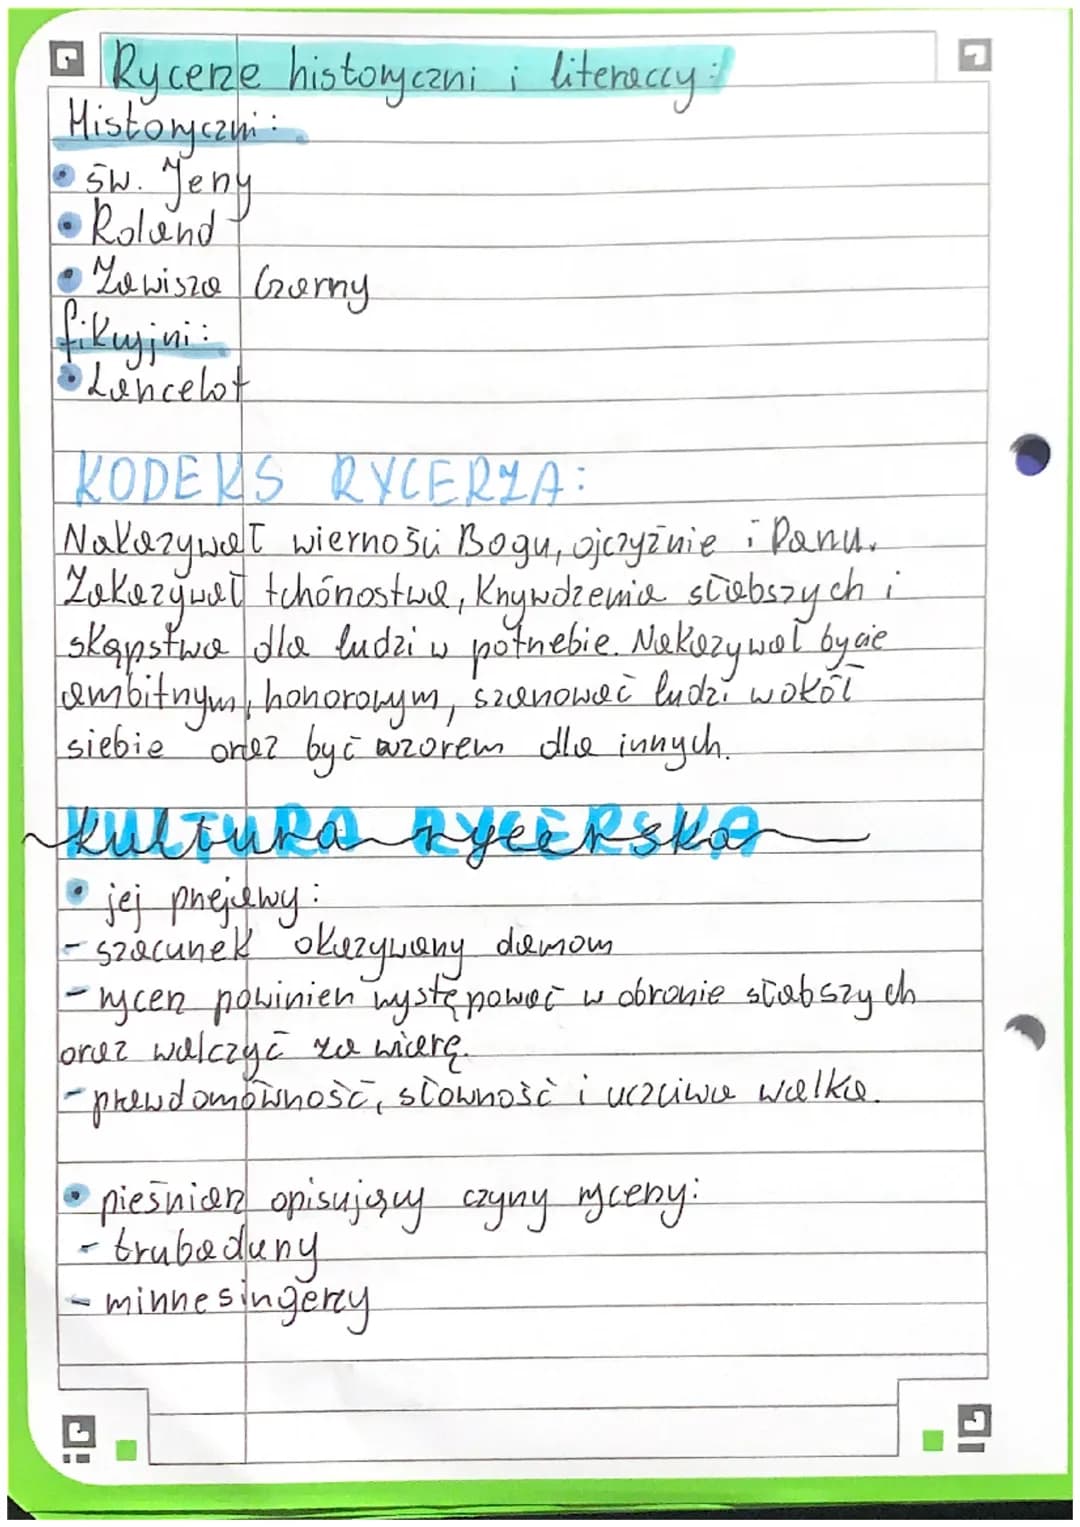 Rycerze historyczni i literaccy:
Historyczni:
• św. Jerzy
• Roland
• Zawisza Czarny
fikcyjni:
• Lancelot
KODEKS RYCERZA:
Nakazywał wierności Bogu, ojczyźnie i Panu.
Zakazywał tchórzostwa, krzywdzenia słabszych i
skąpstwa dla ludzi w potrzebie. Nakazywał bycie
ambitnym, honorowym, szanować ludzi wokół
siebie oraz być wzorem dla innych.
Kultura rycerska
• jej przejawy:
- szacunek okazywany damom
- rycerz powinien występować w obronie słabszych
oraz walczyć za wiarę.
- prawdomówność, słowność i uczciwa walka.
• pieśniarz opisujący czyny rycerzy:
- trubadurzy
- minnesingerzy